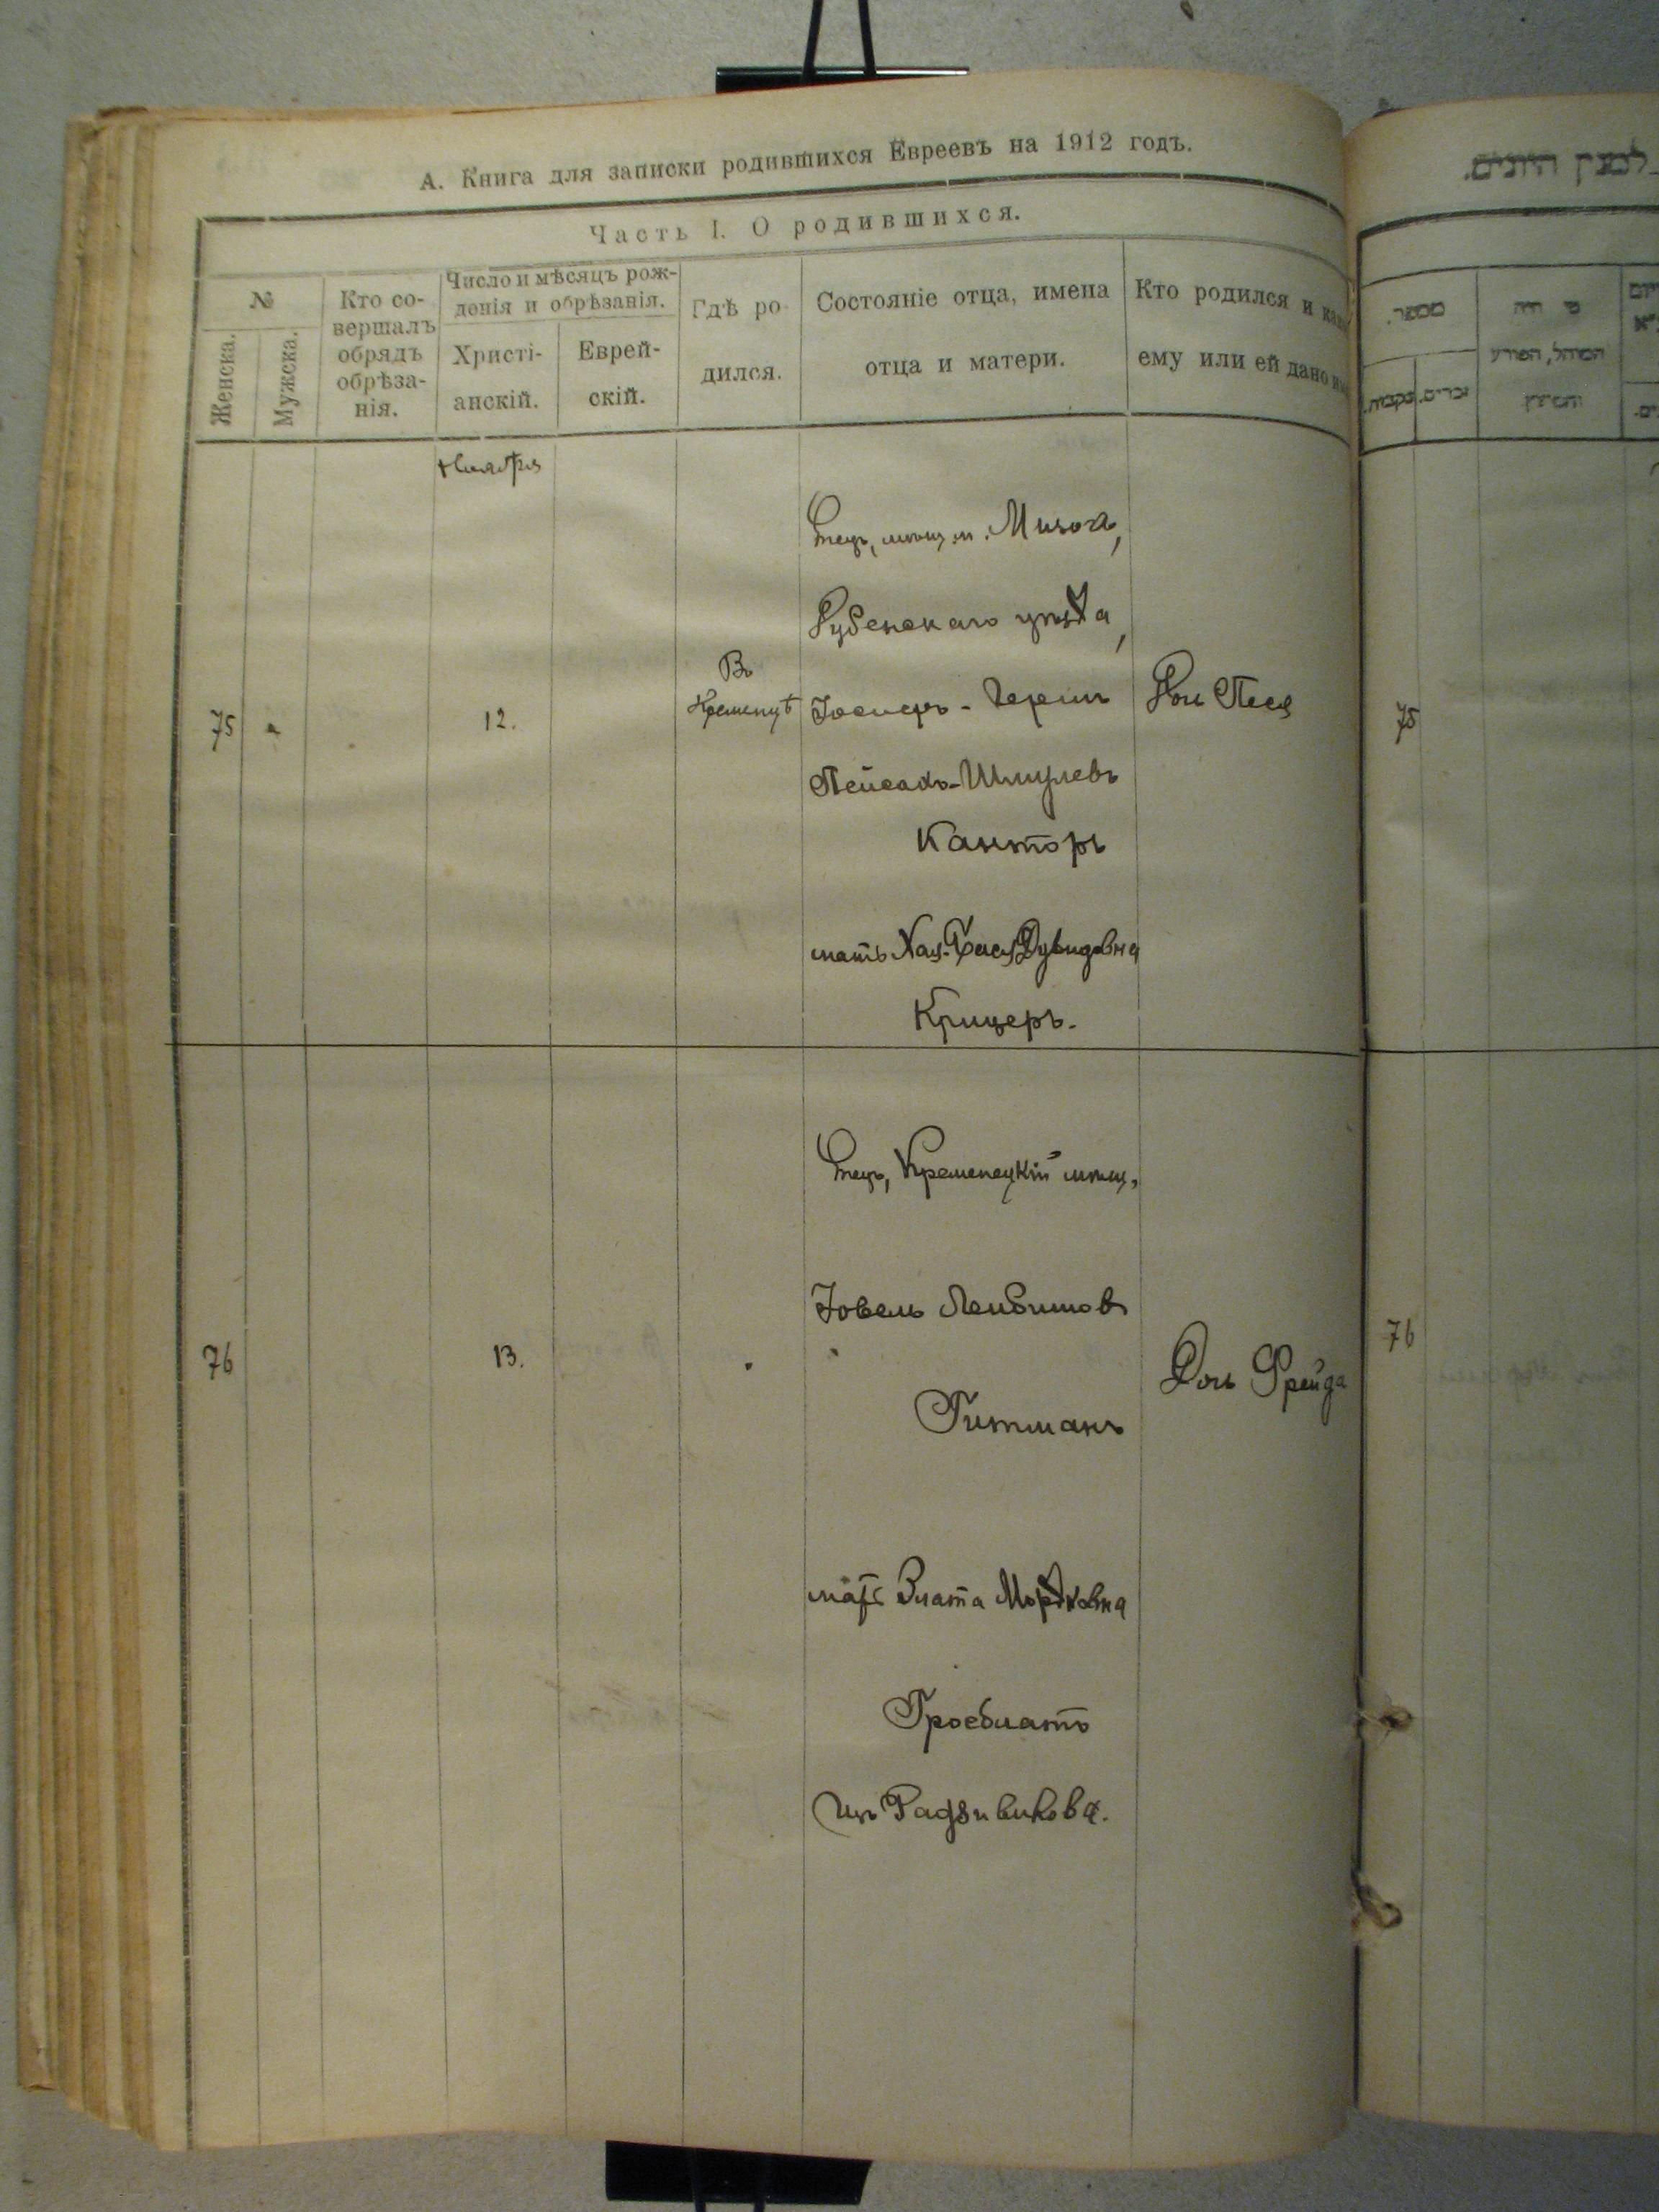 А. Книга для записки родившихся Евреевъ на 1912 годъ.
Часть I. О родившихся.
№
Женска.
Мужска.
Кто со-
вершалъ
обрядъ
обрѣза-
нія.
Число и мѣсяцъ рож-
денія и обрѣзанія.
Христі-
анскій.
Еврей-
скій.
Гдѣ ро
дился.
Состояніе отца, имена
отца и матери.
Кто родился и
ему или ей дано
Ноября
75
12.
Въ
Кременцѣ
Отецъ, мѣщ. м. Мизоча,
Дубенскаго уѣзда,
Гершъ
Пейсахъ-Шмулевъ
Канторъ
мать Хая-Бася Дувидовна
Крицеръ.
Дочь Песя
76
13.
Отецъ, Кременецкій мѣщ.
Іовель Лейбишовъ
Гитманъ
мать Злата Мордковна
Гросблатъ
изъ Радзивилова.
Дочь Фрейда
לכצין היונים.
מספר.
מי היה
המוהל, הפורע
והמוצץ
זכרים.
נקבות.
75
76